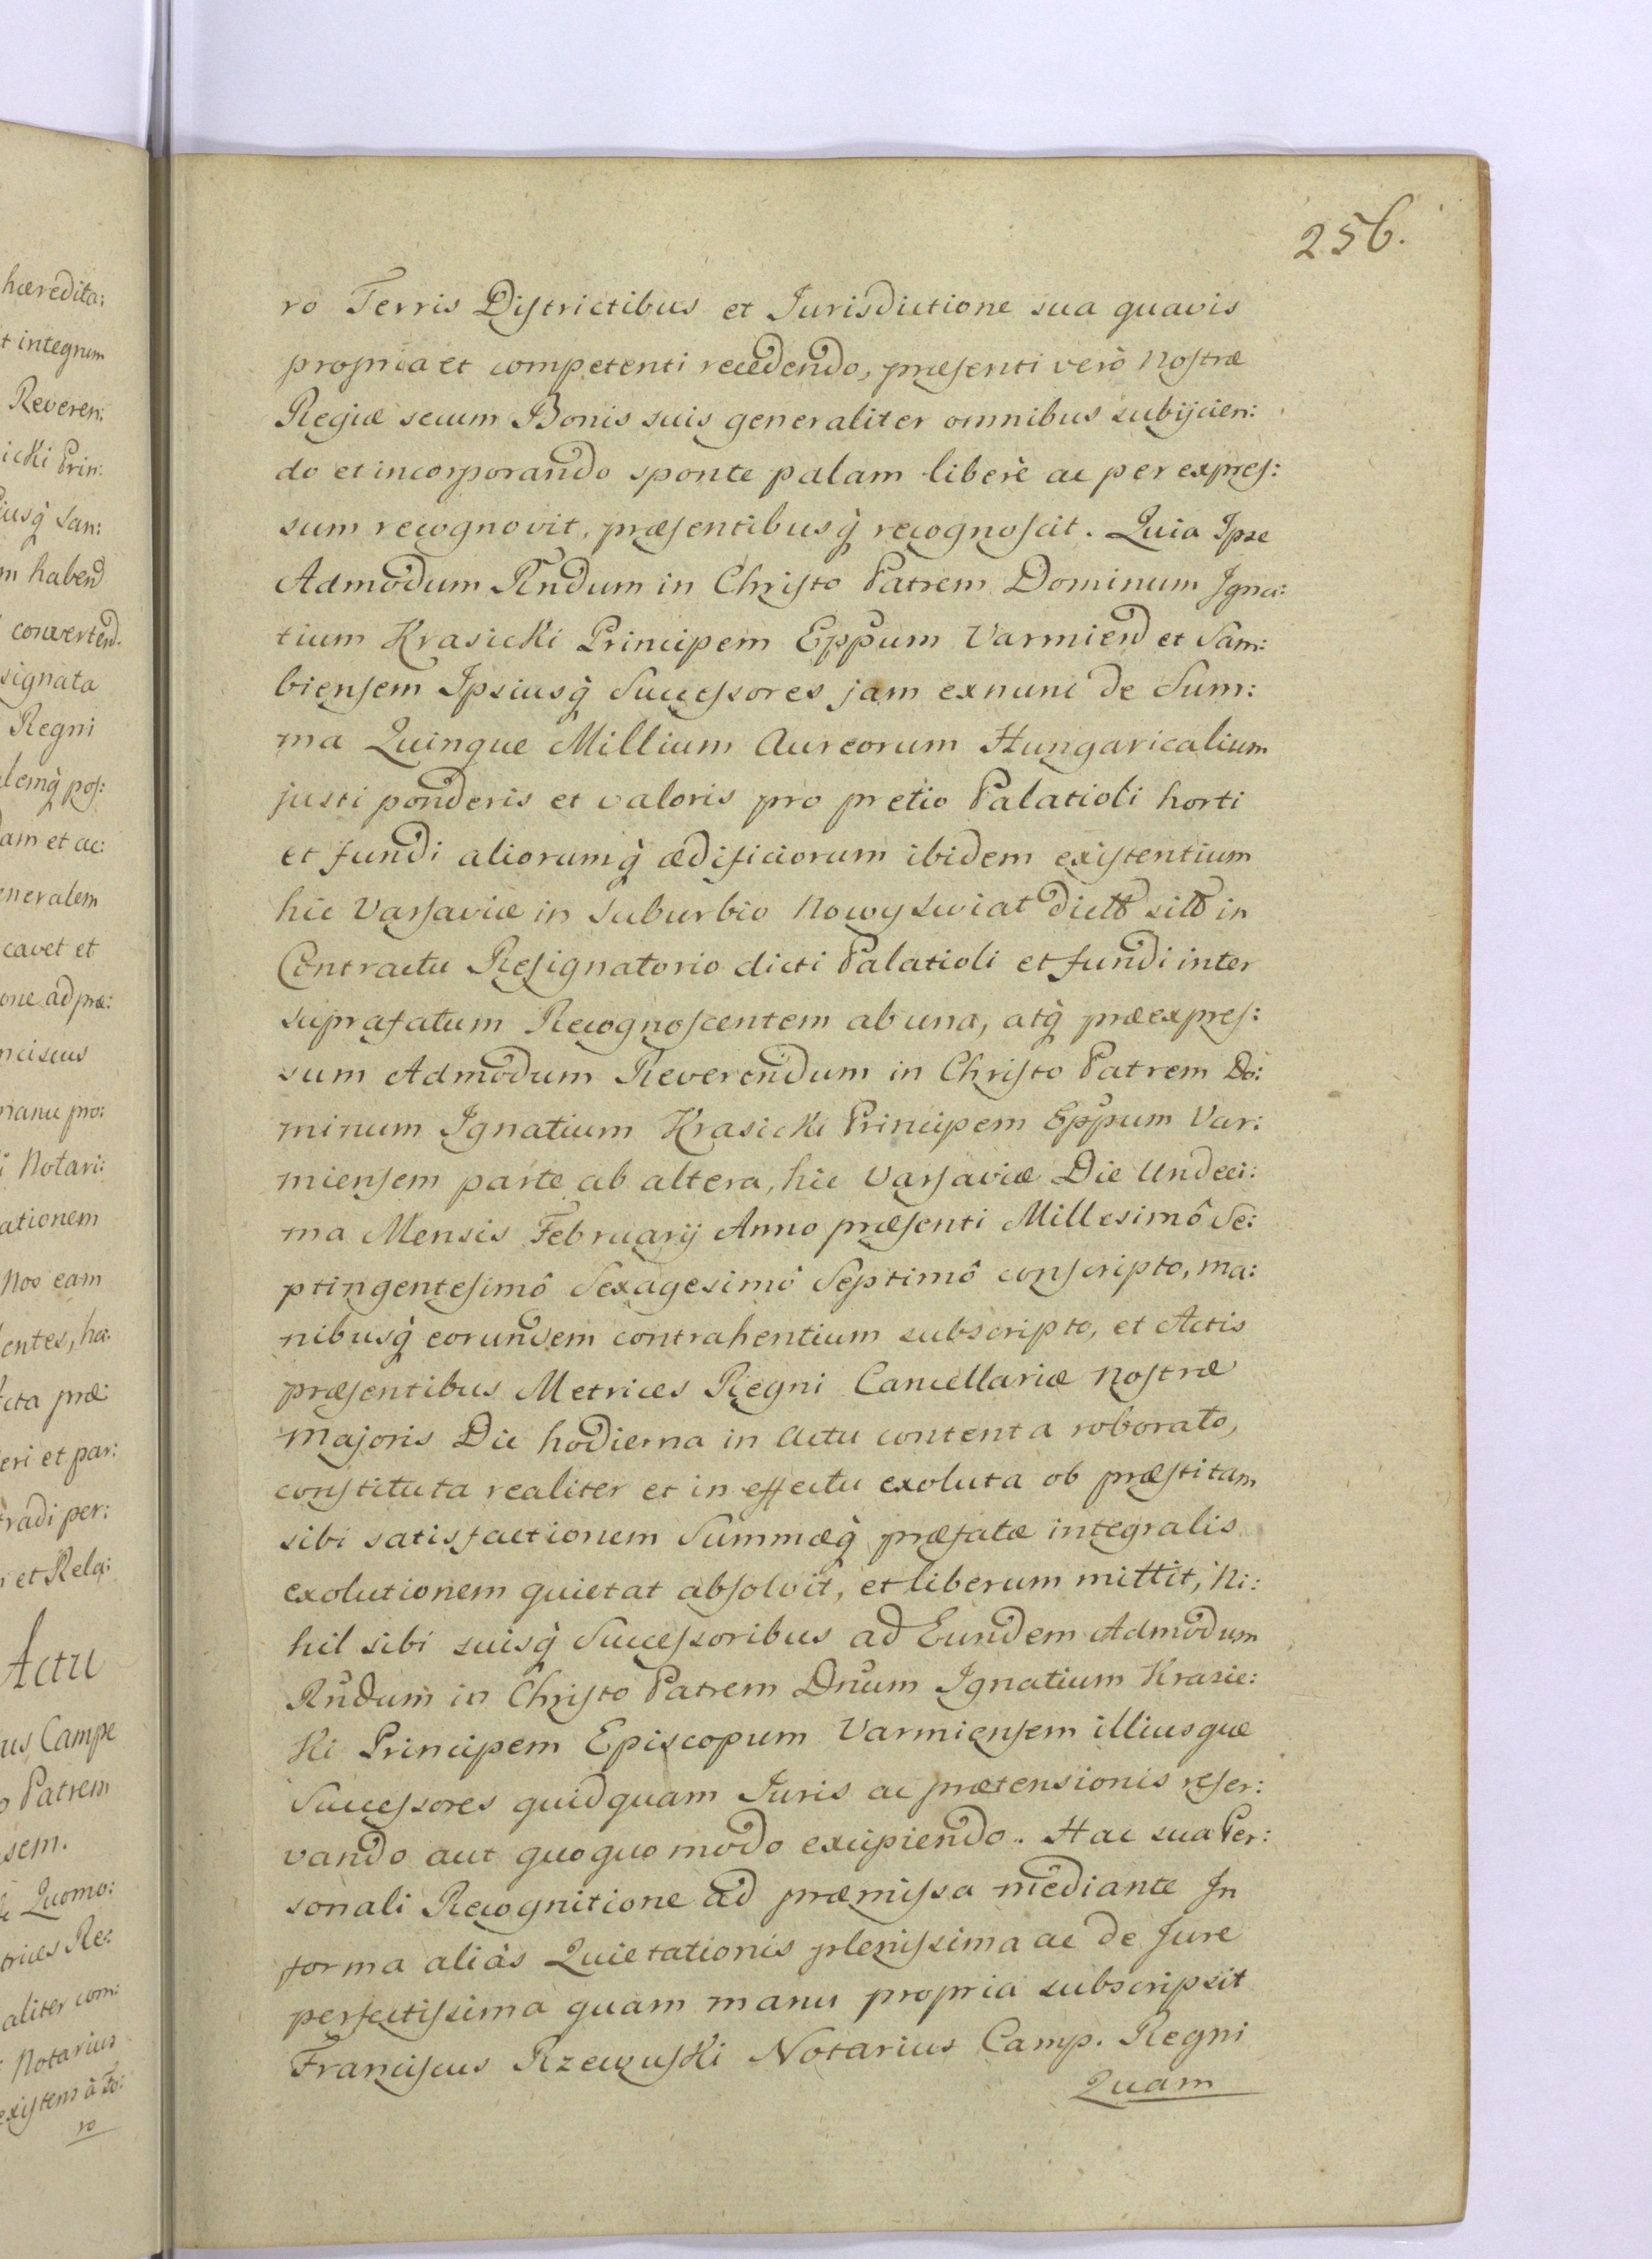 256.
ro Terris Districtibus et Jurisdictione sua quavis
propria et competenti recedendo, præsenti verò Nostræ
Regiæ secum Bonis suis generaliter omnibus subijcien:
do et incorporando sponte palam liberè ac per expres:
sum recognovit, præsentibusq̀ recognoscit. Quia Ipse
Admodum Rndum in Christo Patrem Dominum Igna:
tium Krasicki Principem Eppum Varmien et Sam:
biensem Ipsiusq̀ Successores jam exnunc de Sum:
ma Quinque Millium Aureorum Hungaricalium
justi ponderis et valoris pro pretio Palatioli horti
et fundi aliorumq̀ ædificiorum ibidem existentium
hic Varsaviæ in suburbio Nowy Swiat dicto sito in
Contractu Resignatorio dicti Palatioli et fundi inter
suprafatum Recognoscentem ab una, atq̀ præexpres:
sum Admodum Reverendum in Christo Patrem Do:
minum Ignatium Krasicki Principem Eppum Var:
miensem parte ab altera, hic Varsaviæ Die Undeci:
ma Mensis Februarij Anno præsenti Millesimô Se:
ptingentesimô Sexagesimô Septimô conscripto, ma:
nibusq̀ eorundem contrahentium subscripto, et Actis
præsentibus Metrices Regni Cancellariæ Nostræ
Majoris Die hodierna in Actu contenta roborato,
constituta realiter et in effectu exoluta ob præstitam
sibi satisfactionem Summæq̀ præfatæ integralis
exolutionem quietat absolvit, et liberum mittit, Ni:
hil sibi suisq̀ Successoribus ad Eundem Admodum
Rndum in Christo Patrem Dnum Ignatium Krasic:
ki Principem Episcopum Varmiensem illiusque
Successores quidquam Juris ac prætensionis reser:
vando aut quoquo modo excipiendo. Hac sua Per:
sonali Recognitione ad præmissa mediante In
forma aliàs Quietationis plenissima ac de Jure
perfectissima quam manu propria subscripsit
Franciscus Rzewuski Notarius Camp. Regni
Quam
hæredita:
t integrum
Reveren:
icki Prin:
iusq̀ Sam:
m habend
convertend.
signata
Regni
lemq̀ pos:
dam et ac:
eneralem
cavet et
one ad præ:
nciscus
manu pro:
i Notari:
ationem
Nos eam
entes, ha:
cta præ
eri et par:
radi per:
et Rela:
Actu
us Campe
o Patrem
sem.
Quomo:
trices Re:
aliter com:
Notarius
existens à Fo:
ro